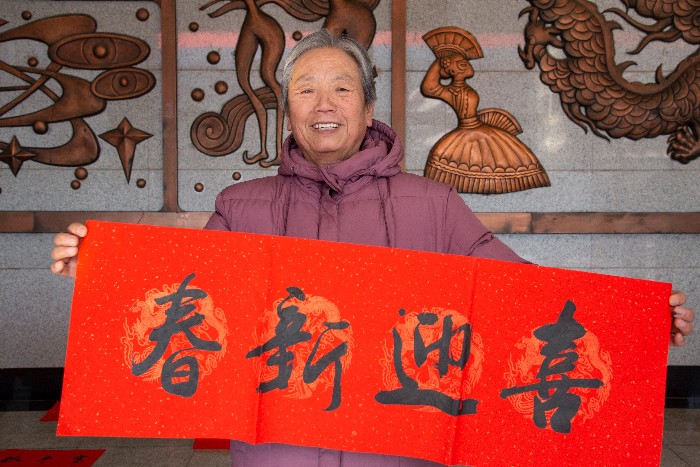 喜迎新春